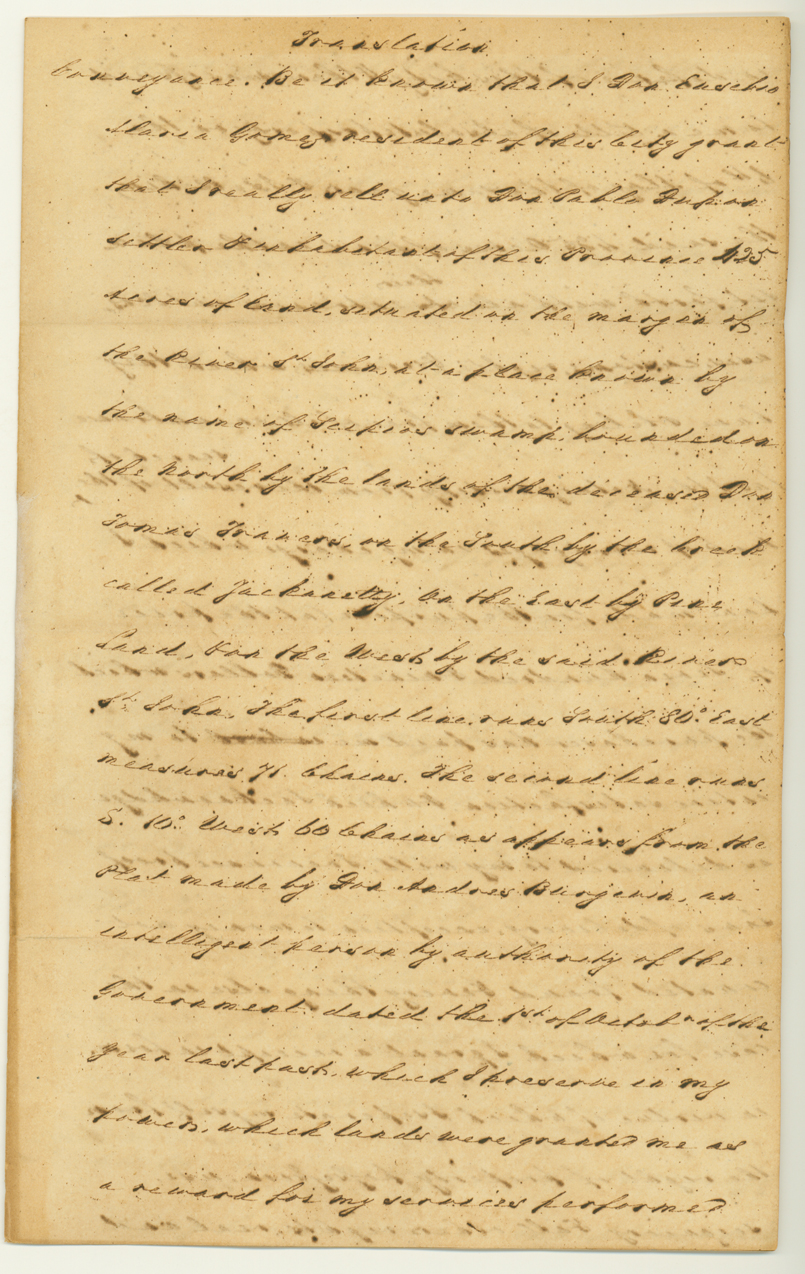 Translation
Conveyance. Be it known that I Don Eusebio
Maria Gomez resident of this City grant
that I really sell unto Don Pablo Dupon
settler & inhabitant of this Province 425
Acres of land, situated on the margin of
the River St. John, at a place known by
the name of Scipios swamp, bounded on
the North by the lands of the deceased Don
Tomas Travers, on the South by the Creek
called Jackanetty, On the East by Pine
Land, & on the West by the said River
St. John. The first line runs South 80° East
measures 71. Chains. The second line runs
S. 10° West 60 Chains as appears from the
Plat made by Don Andres Burgevin, an
intelligent person by authority of the
Government dated the 1st of Octobr of the
year last past, which I preserve in my
power, which lands were granted me as
a reward for my services performed